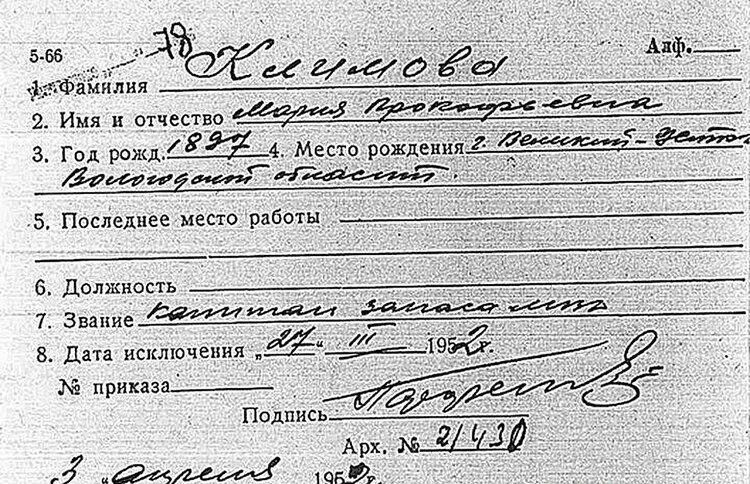 5-66 78 Алф.
1. Фамилия Климова
2. Имя и отчество Мария Прокофьевна
3. Год рожд. 1897 4. Место рождения г. Великий-Устюг
Вологодской области.
5. Последнее место работы
6. Должность
7. Звание капитан запаса
8. Дата исключения „27" III 1952 г.
№ приказа
Подпись
Арх. № 21430
3 апреля 195